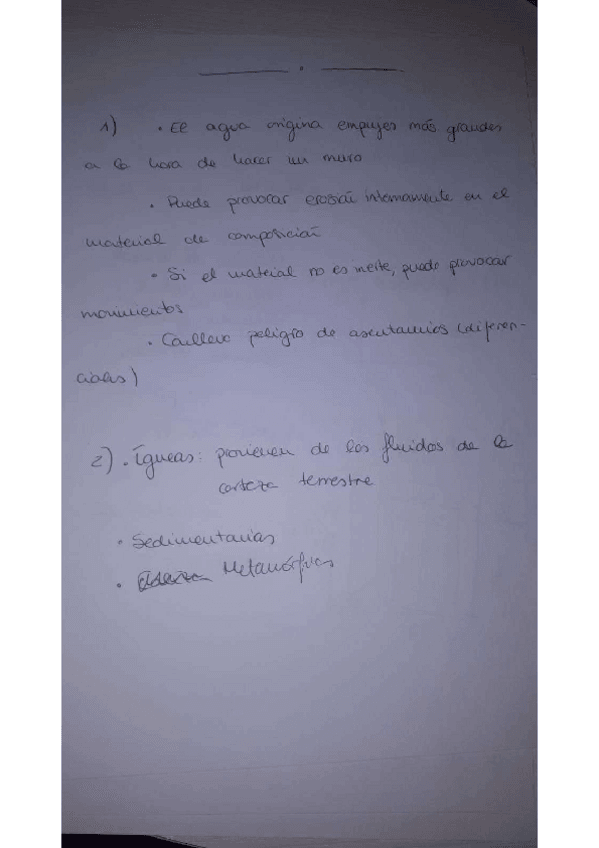 1) • El agua origina empujes más grandes
a la hora de hacer un muro
• Puede provocar erosión internamente en el
material de composición
• Si el material no es inerte, puede provocar
movimientos
• Conlleva peligro de asentamientos (diferen-
ciales)
2) • Ígneas: provienen de los fluidos de la
corteza terrestre
• Sedimentarias
• Metamórficas